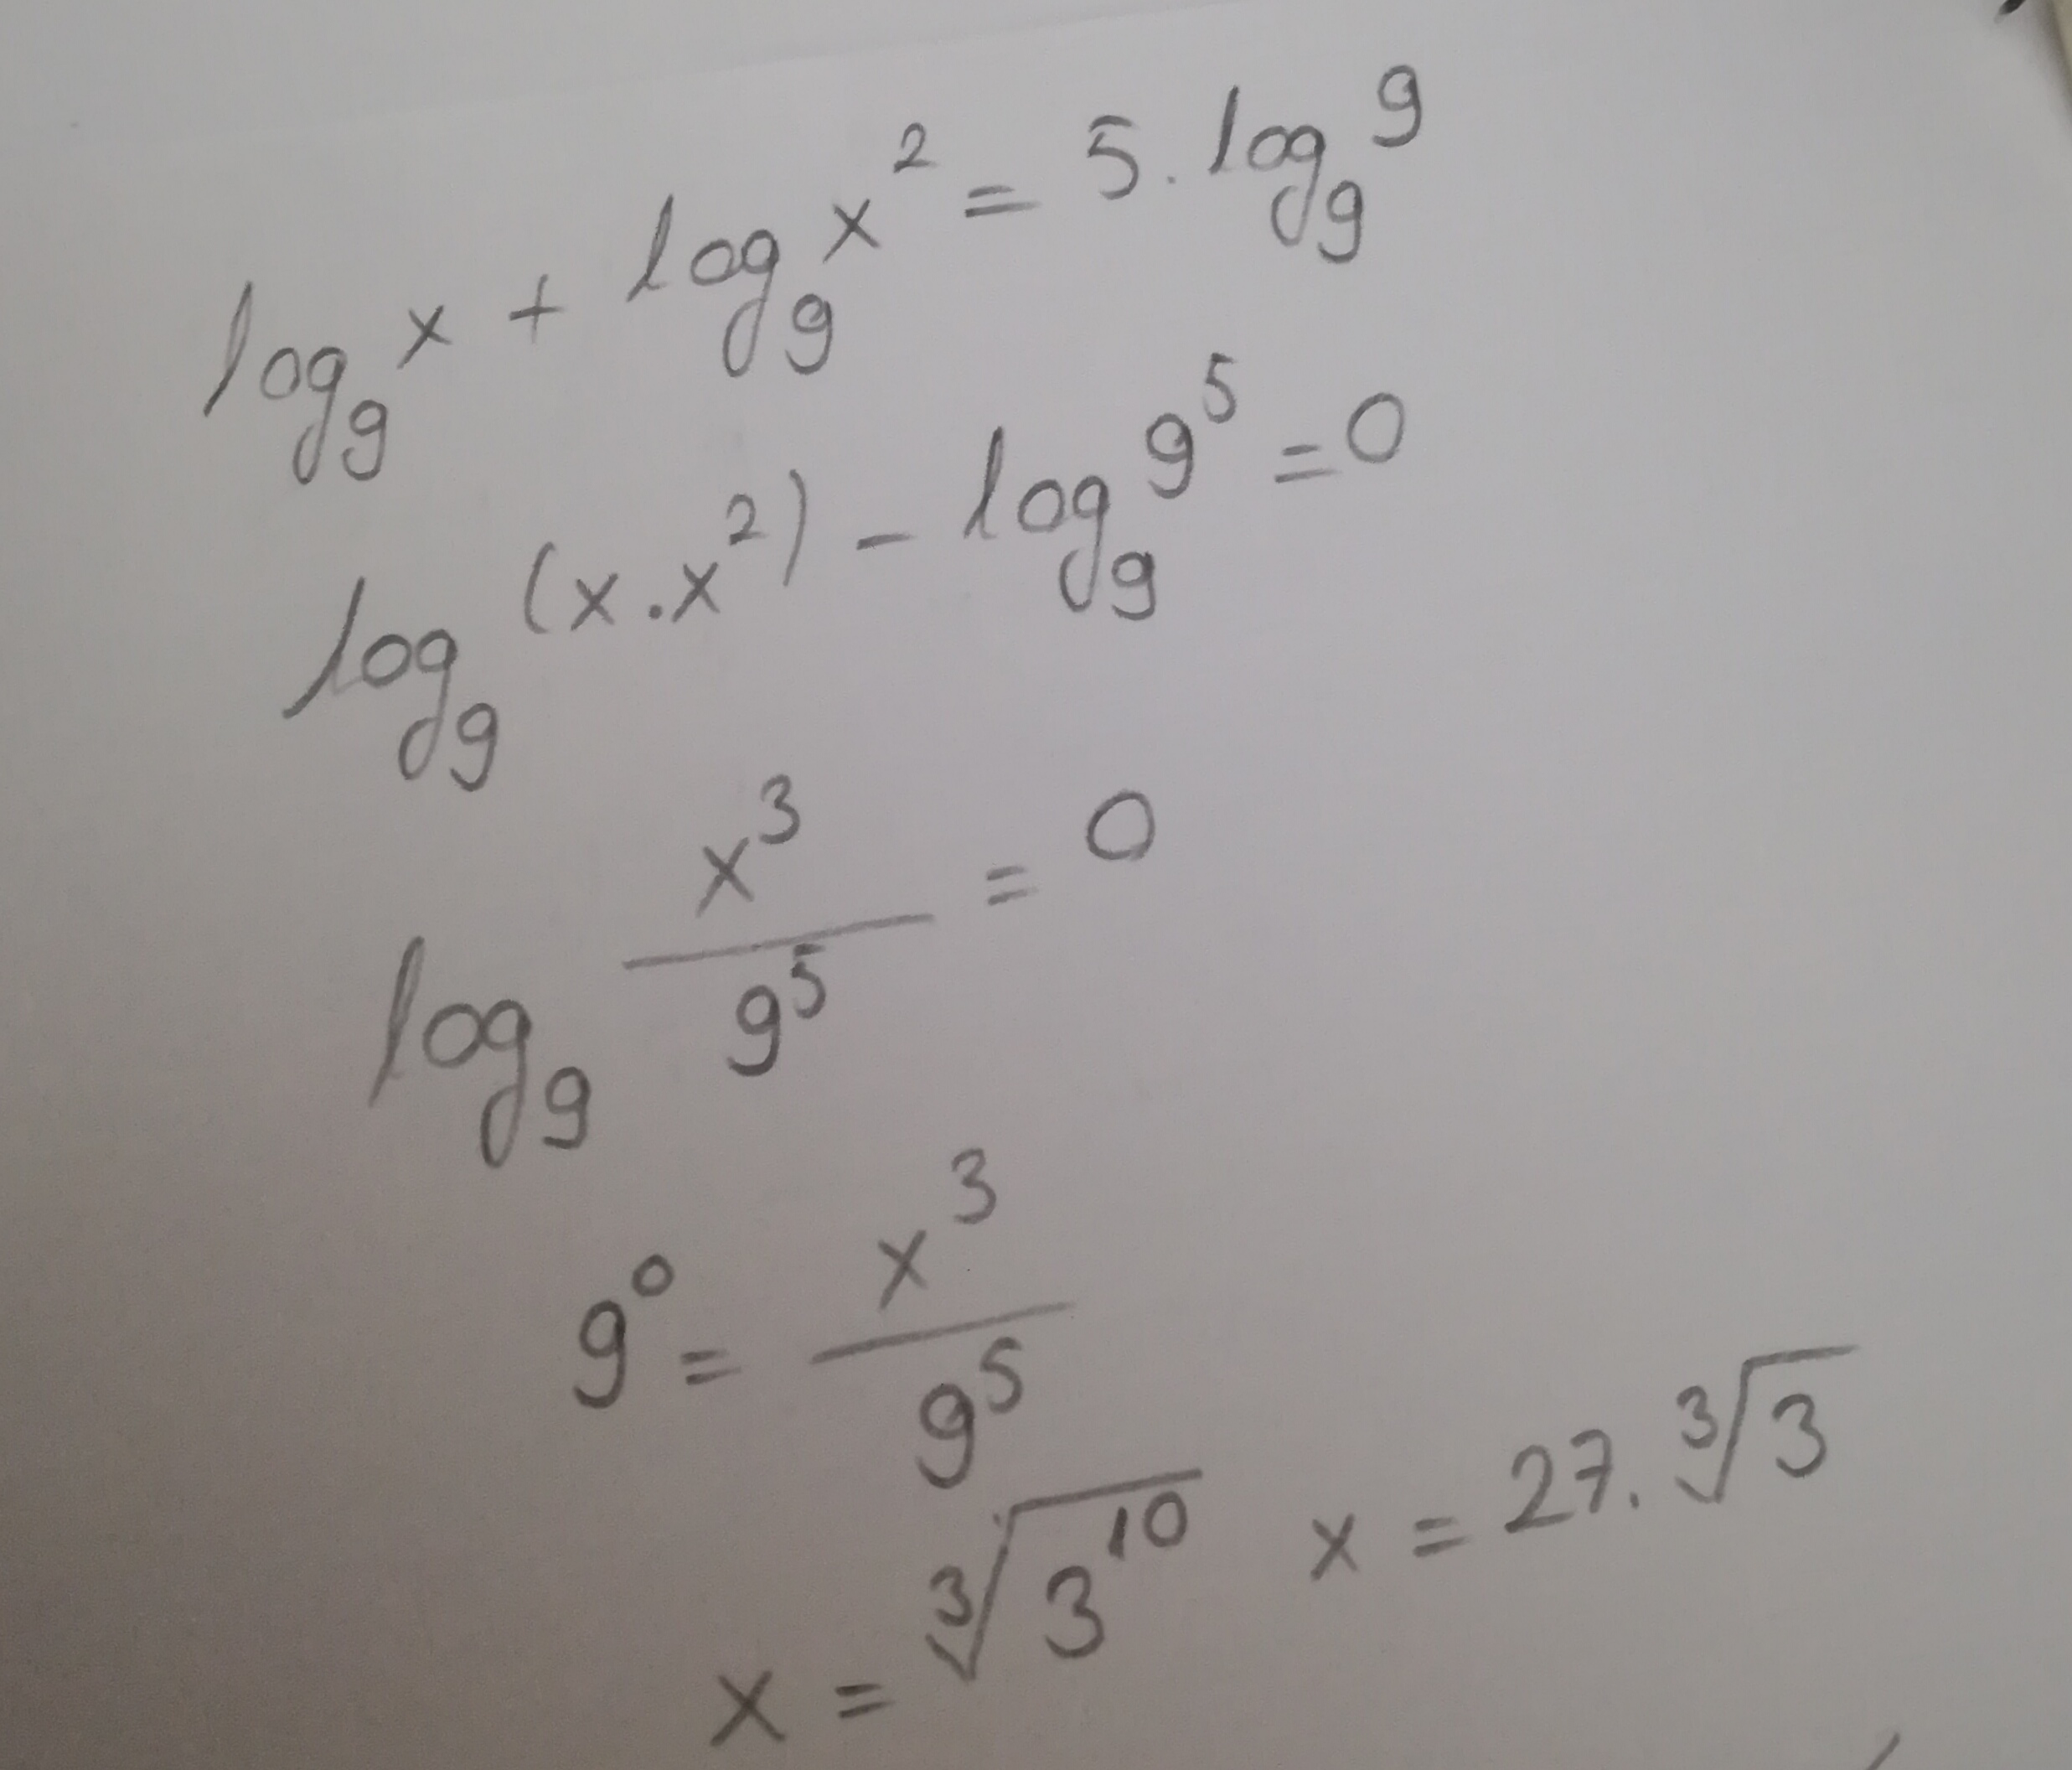 log₉ x + log₉ x² = 5 . log₉ 9
log₉ (x . x²) - log₉ 9⁵ = 0
log₉ x³/9⁵ = 0
9⁰ = x³/9⁵
x = ∛3¹⁰ x = 27 . ∛3